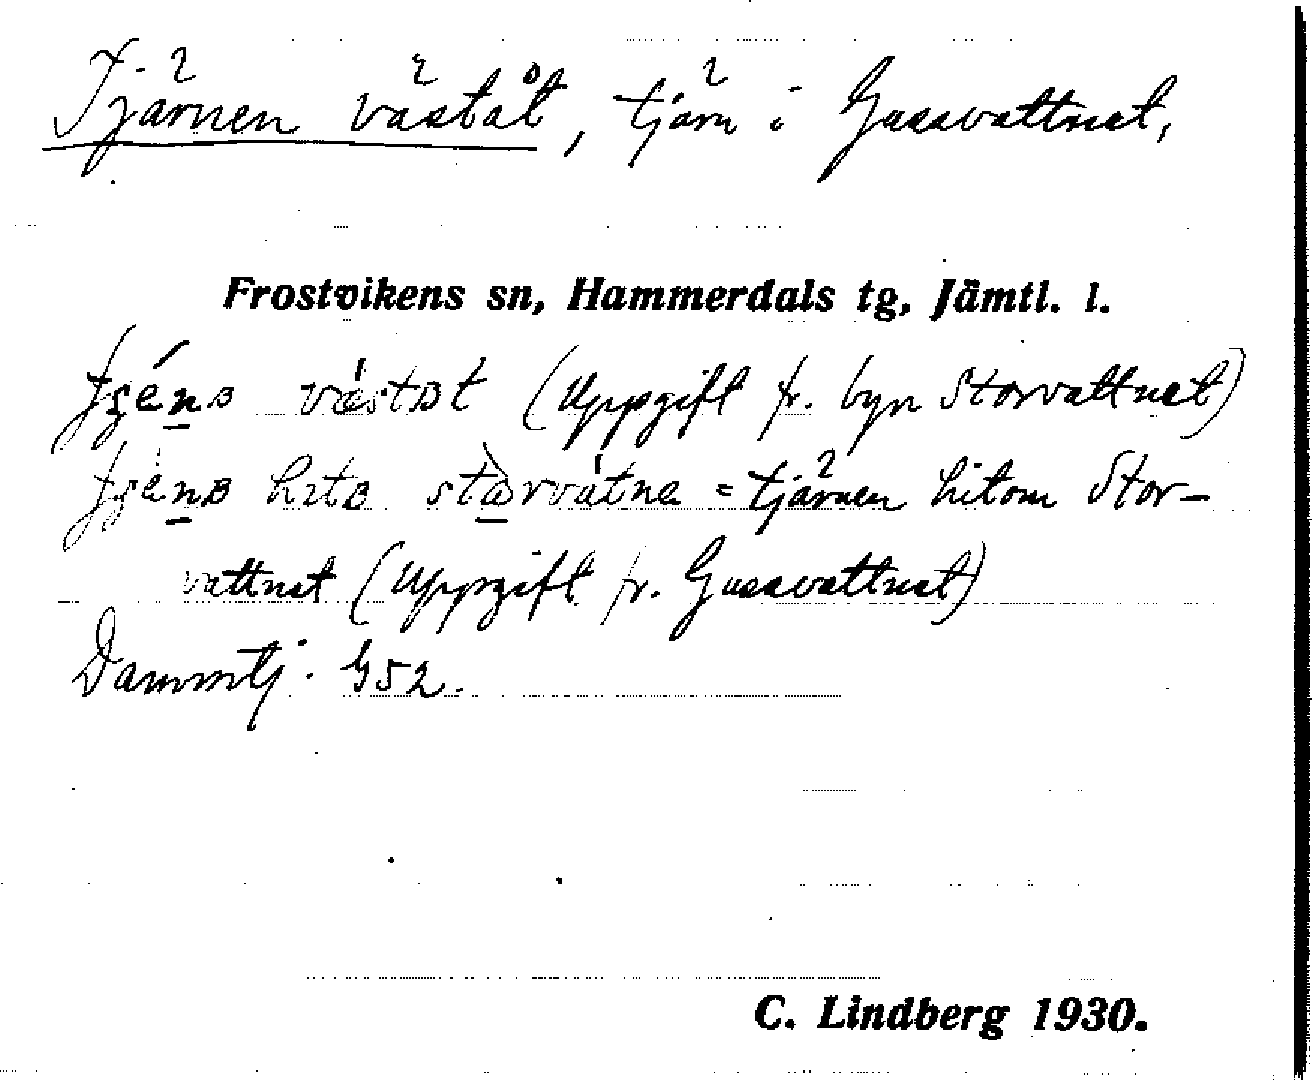 Tjärnen väståt, tjärn i Gussvattnet,
Frostvikens sn, Hammerdals tg, Jämtl. l.
västət (Uppgift fr. byn Storvattnet)
hitə = tjärnen hitom Stor-
vattnet (Uppgift fr. Gussvattnet)
Dammtj. G52.
C. Lindberg 1930.